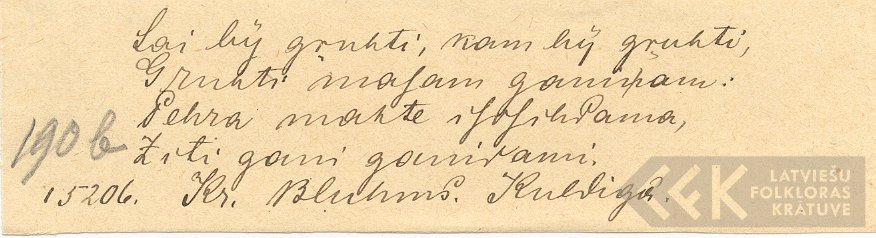 Lai bij gruhti, kam bij gruhti,
Gruhti masam ganiņam:
Pehra mahte issihdama,
Ziti gani ganidami.
190 b
15206. Kr. Bluhms. Kuldigā.
LATVIEŠU
FOLKLORAS
KRĀTUVE
LFK